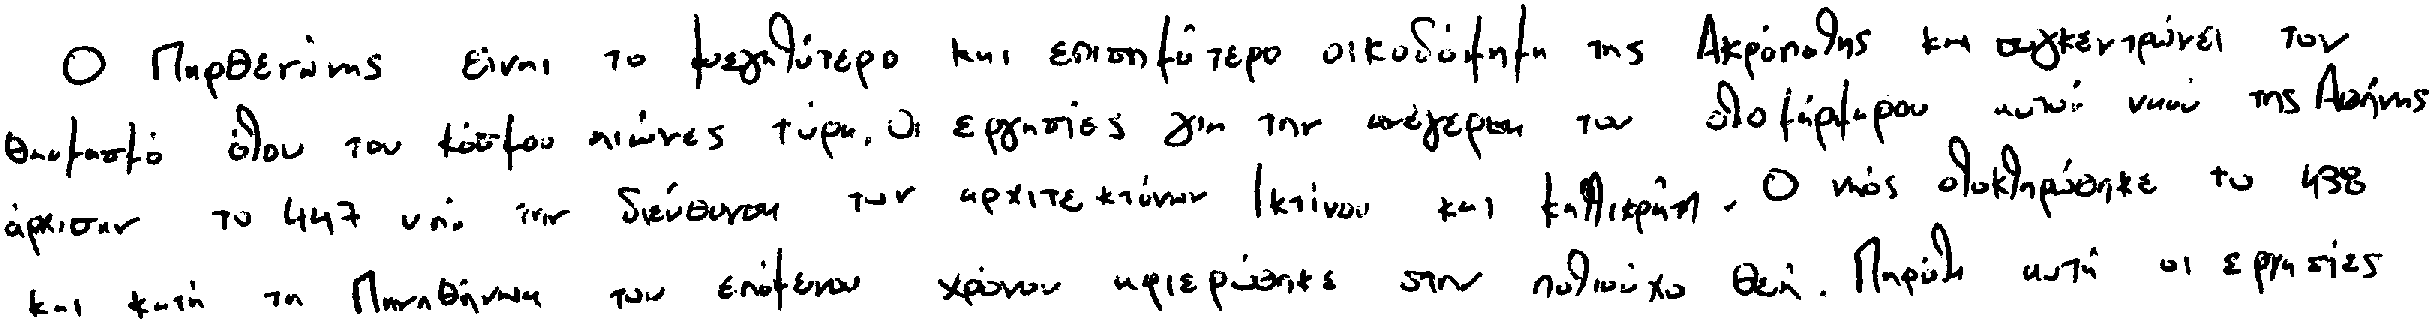 Ο Παρθενώνας είναι το μεγαλύτερο και επισημότερο οικοδόμημα της Ακρόπολης και συγκεντρώνει τον
θαυμασμό όλου του κόσμου αιώνες τώρα. Οι εργασίες για την ανέγερση του ολομάρμαρου αυτού ναού της Αθήνας
άρχισαν το 447 υπό την διεύθυνση των αρχιτεκτόνων Ικτίνου και Καλλικράτη. Ο ναός ολοκληρώθηκε το 438
και κατά τα Παναθήναια του επόμενου χρόνου αφιερώθηκε στην πολιούχο θεά. Παρόλα αυτά οι εργασίες